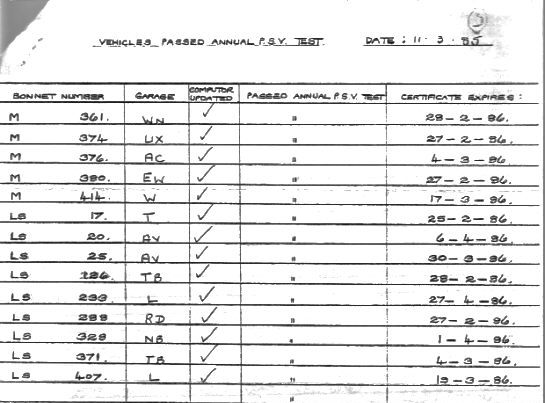 3
VEHICLES PASSED ANNUAL P.S.V. TEST. DATE : 11 - 3 - 85
BONNET NUMBER GARAGE COMPUTOR UPDATED PASSED ANNUAL P.S.V. TEST CERTIFICATE EXPIRES :
M 361. WN ✓ " 28 - 2 - 86.
M 374 UX ✓ " 27 - 2 - 86.
M 376. AC ✓ " 4 - 3 - 86
M 380. EW ✓ " 27 - 2 - 86.
M 414. W ✓ " 17 - 3 - 86.
LS 17. T ✓ " 25 - 2 - 86.
LS 20. AV ✓ " 6 - 4 - 86.
LS 25. AV ✓ " 30 - 3 - 86.
LS TB ✓ " 28 - 2 - 86.
LS 233 L ✓ " 27 - 4 - 86.
LS RD ✓ " 27 - 2 - 86.
LS 329 NB ✓ " 1 - 4 - 86.
LS 371. TB ✓ " 4 - 3 - 86.
LS 407. L ✓ " 19 - 3 - 86.
"